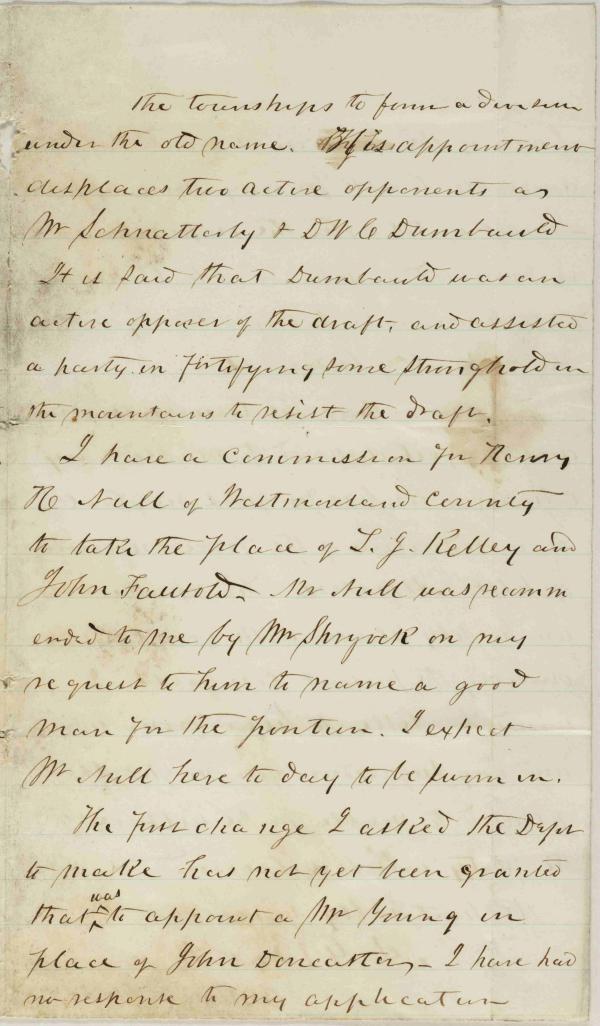 the townships to form a division
under the old name. His appointment
displaces two active opponents as
Mr Schnatterly & D W C Dumbauld
It is said that Dumbauld was an
active opposer of the draft, and assisted
a party in fortifying some stronghold in
the mountains to resist the draft.
I have a commission for Henry
H Null of Westmoreland County
to take the place of L. J. Kelley and
John Fausold. Mr Null was recomm
ended to me by Mr Shryock on my
request to him to name a good
man for the position. I expect
Mr Null here to day to be sworn in.
The first change I asked the Dept
to make has not yet been granted
that was to appoint a Mr Young in
place of John Doncaster, - I have had
no response to my application